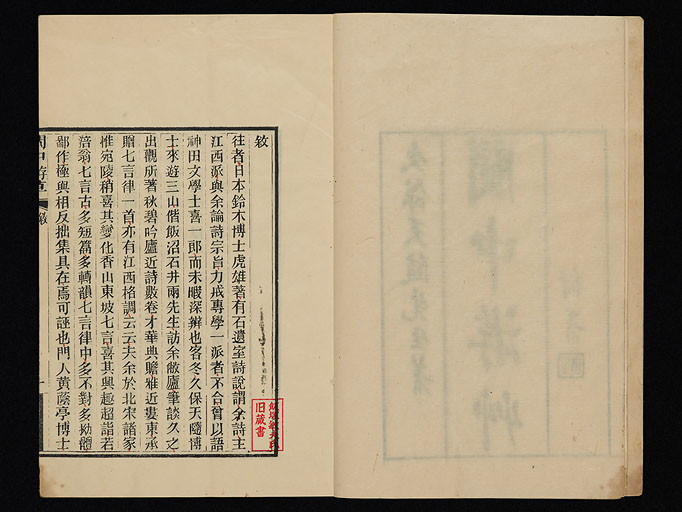 敘
往者日本鈴木博士虎雄著有石遺室詩說謂余詩主
江西派與余論詩宗旨力戒專學一派者不合曾以語
神田文學士喜一郎而未暇深辨也客冬久保天隨博
士來遊三山偕飯沼石井兩先生訪余敝廬筆談久之
出觀所著秋碧吟廬近詩數卷才華典贍雅近婁東承
贈七言律一首亦有江西格調云云夫余於北宋諸家
惟宛陵稍喜其變化香山東坡七言喜其興趣超詣若
涪翁七言古多短篇多轉韻七言律中多不對多拗體
鄙作極與相反拙集具在焉可誣也門人黃蔭亭博士
閩中游草
敘
一
旧蔵書